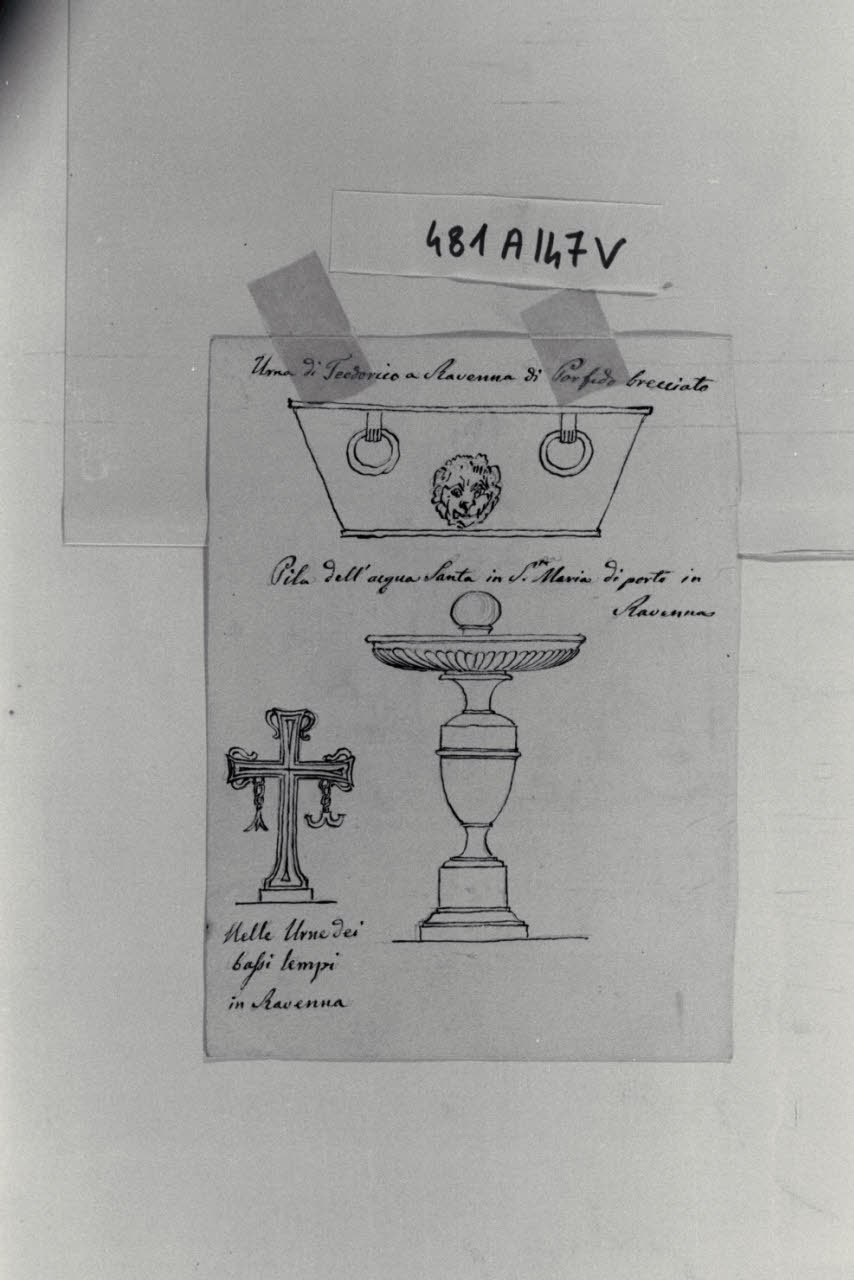 481 A 147 V
Urna di Teodorico a Ravenna di Porfido brecciato
Pila dell'acqua Santa in S.ta Maria di porto in
Ravenna
Nelle Urne dei
bassi tempi
in Ravenna